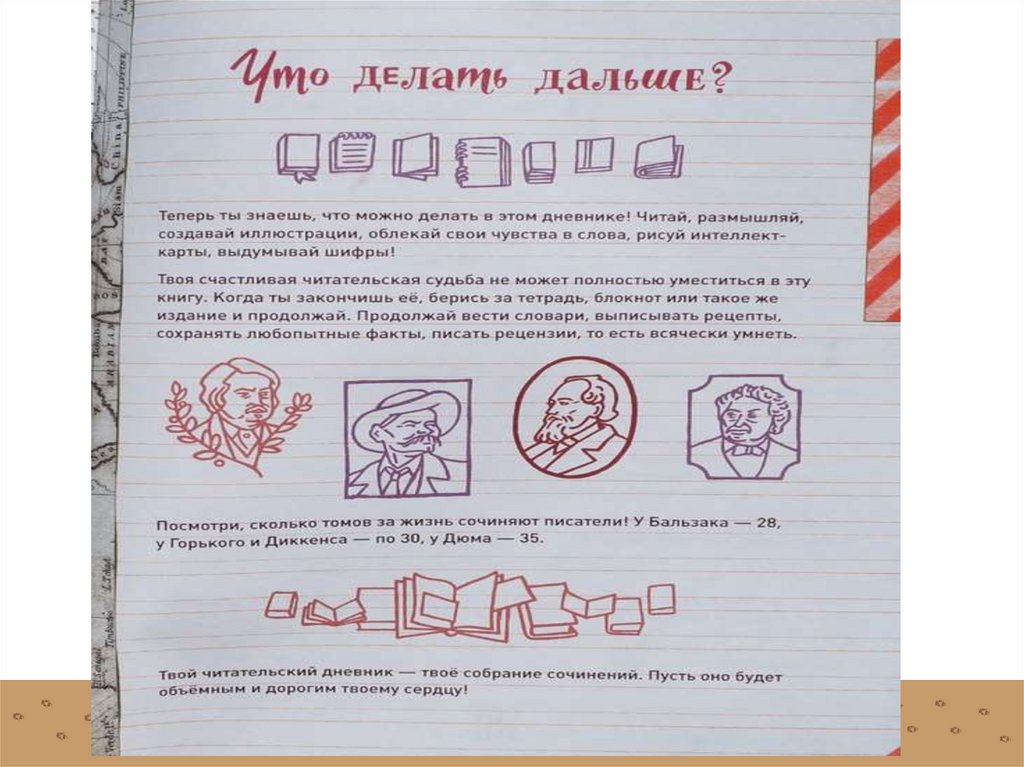 Что делать дальше?
Теперь ты знаешь, что можно делать в этом дневнике! Читай, размышляй,
создавай иллюстрации, облекай свои чувства в слова, рисуй интеллект-
карты, выдумывай шифры!
Твоя счастливая читательская судьба не может полностью уместиться в эту
книгу. Когда ты закончишь её, берись за тетрадь, блокнот или такое же
издание и продолжай. Продолжай вести словари, выписывать рецепты,
сохранять любопытные факты, писать рецензии, то есть всячески умнеть.
Посмотри, сколько томов за жизнь сочиняют писатели! У Бальзака — 28,
у Горького и Диккенса — по 30, у Дюма — 35.
Твой читательский дневник — твоё собрание сочинений. Пусть оно будет
объёмным и дорогим твоему сердцу!
PHILIPPINE
China
Siam
ARABIAN
L.Tchad
Timbuctoo